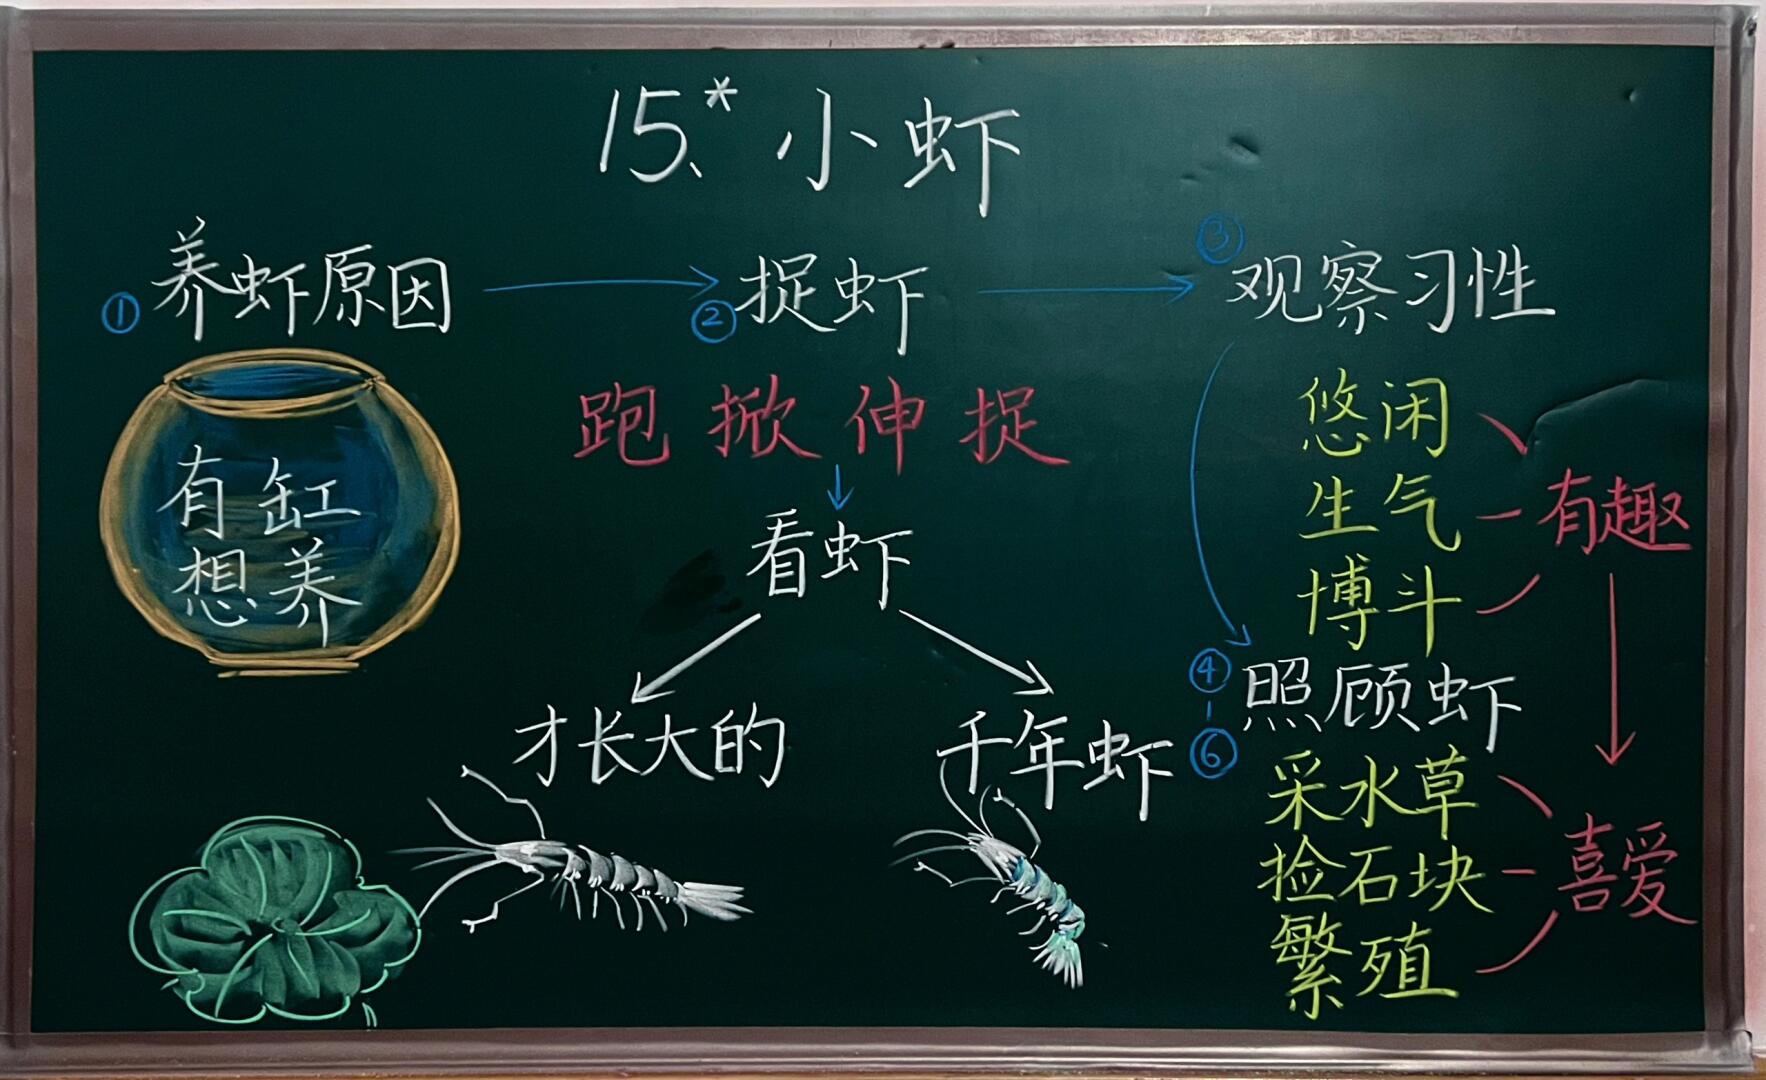 15、* 小虾
① 养虾原因
有缸
想养
② 捉虾
跑 掀 伸 捉
看虾
才长大的
千年虾
③ 观察习性
悠闲
生气
博斗
有趣
④-⑥ 照顾虾
采水草
捡石块
繁殖
喜爱